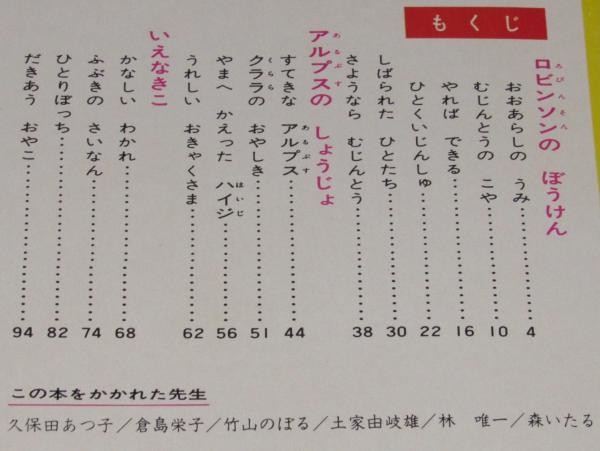 もくじ
ロビンソンの ぼうけん
ろびんそん
おおあらしの うみ……4
むじんとうの こや……10
やれば できる……16
ひとくいじんしゅ……22
しばられた ひとたち……30
さようなら むじんとう……38
アルプスの しょうじょ
あるぷす
すてきな アルプス……44
あるぷす
クララの おやしき……51
くらら
やまへ かえった ハイジ……56
はいじ
うれしい おきゃくさま……62
いえなきこ
かなしい わかれ……68
ふぶきの さいなん……74
ひとりぼっち……82
だきあう おやこ……94
この本をかかれた先生
久保田あつ子／倉島栄子／竹山のぼる／土家由岐雄／林 唯一／森いたる